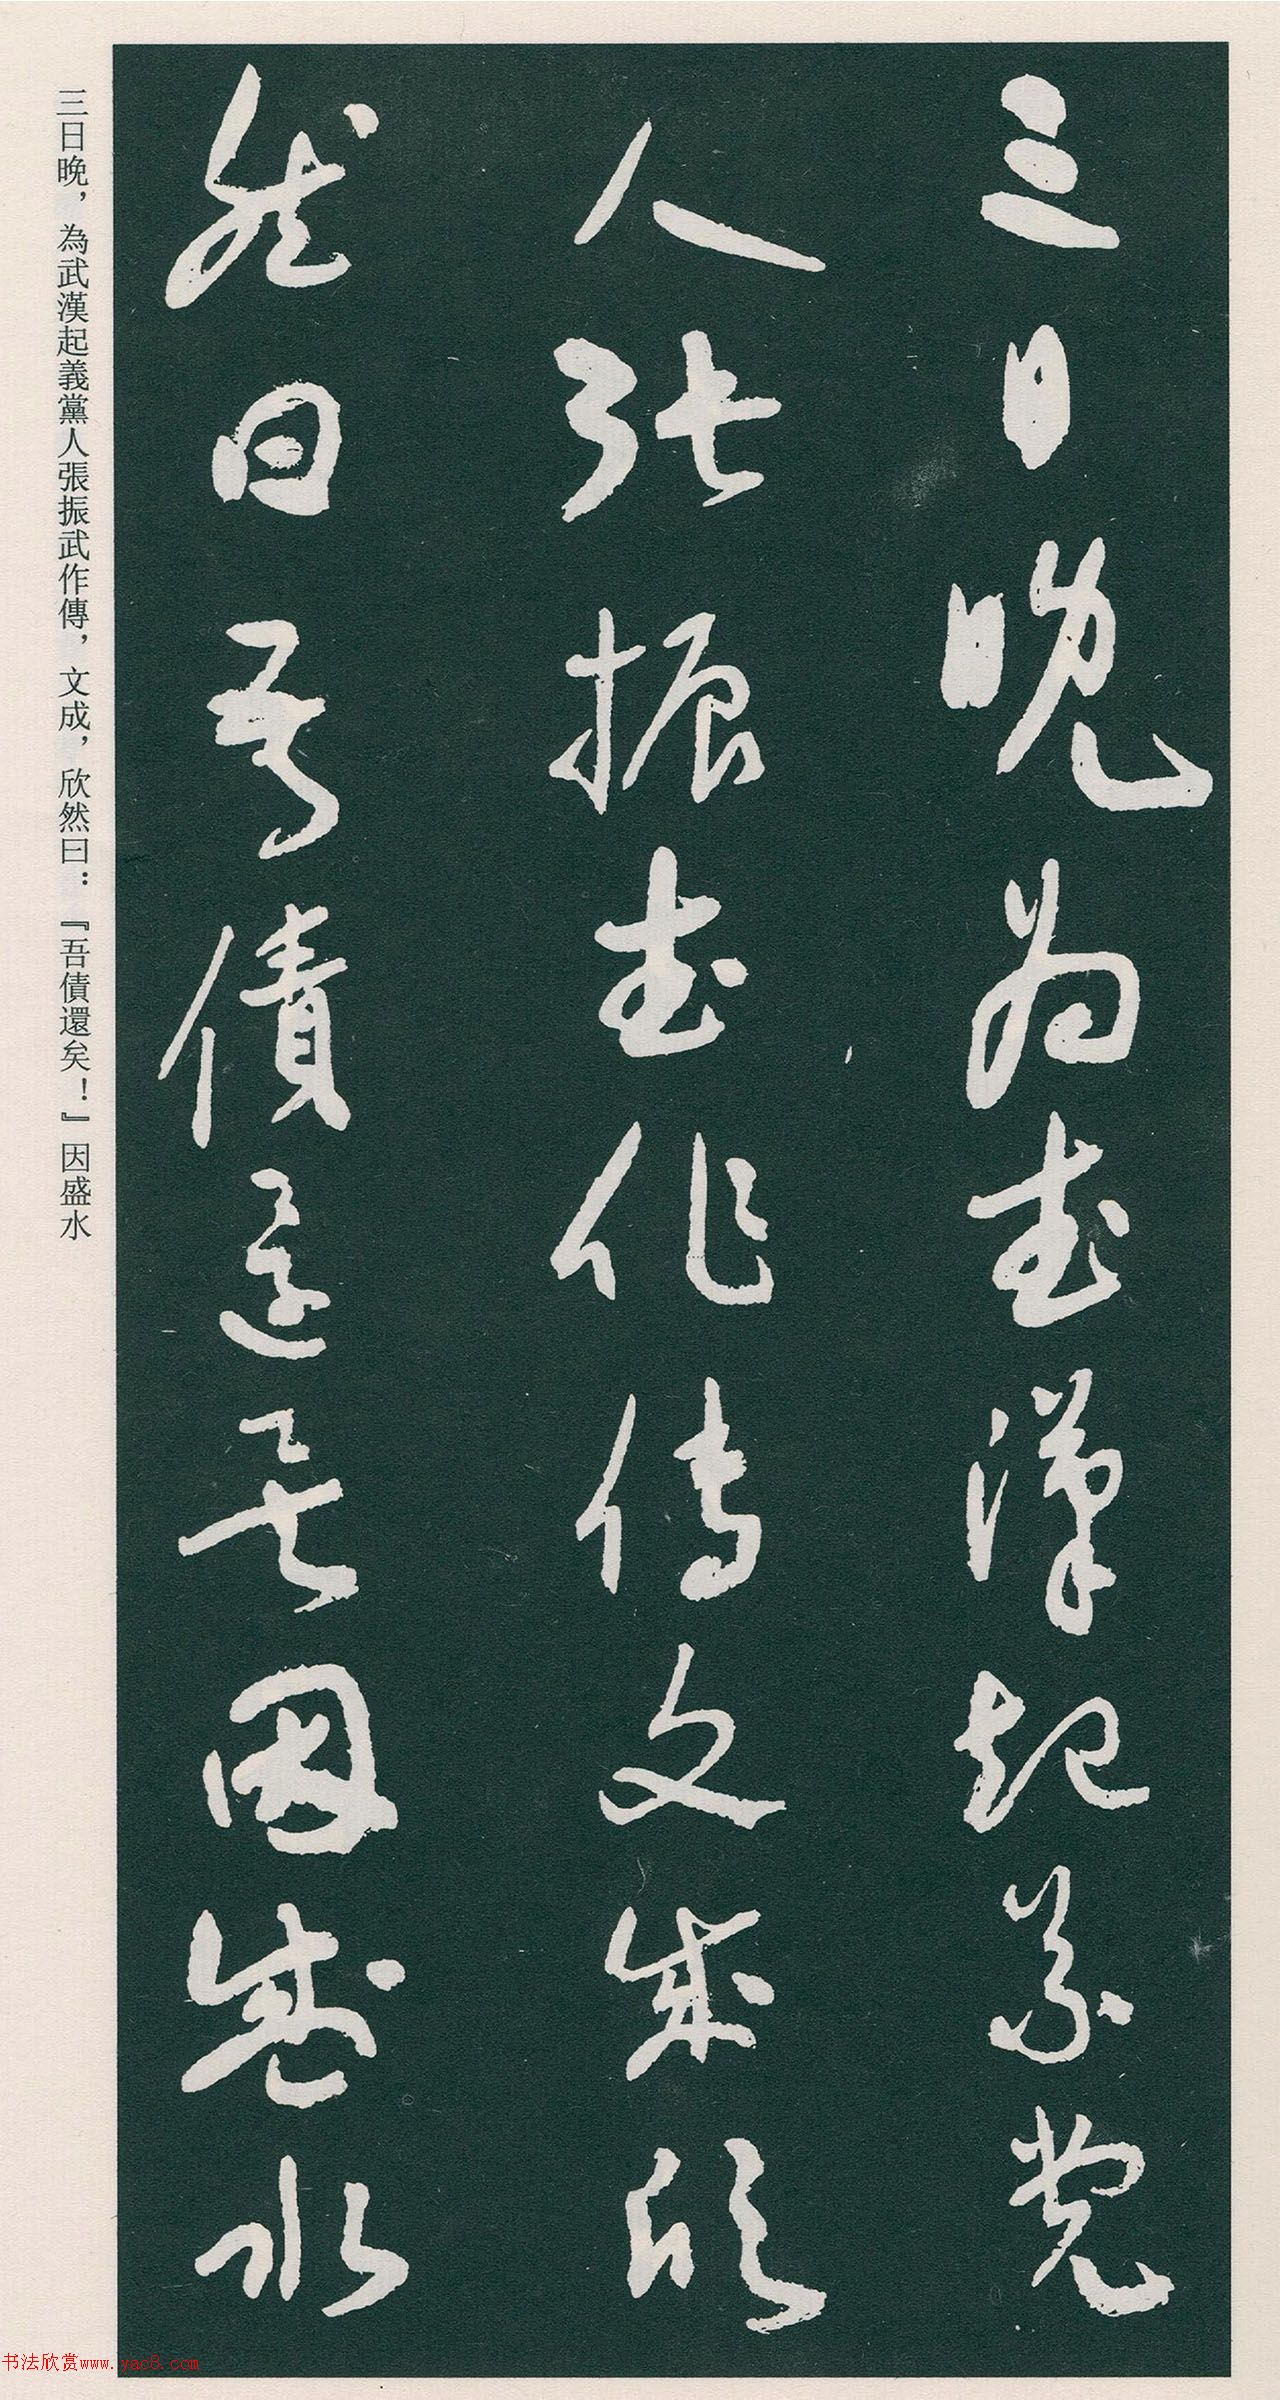 三日晚为武漢起義党
人張振武作传文成欣
然曰吾債還矣因盛水
三日晚，為武漢起義黨人張振武作傳，文成，欣然曰：『吾債還矣！』因盛水
书法欣赏www.yac8.com